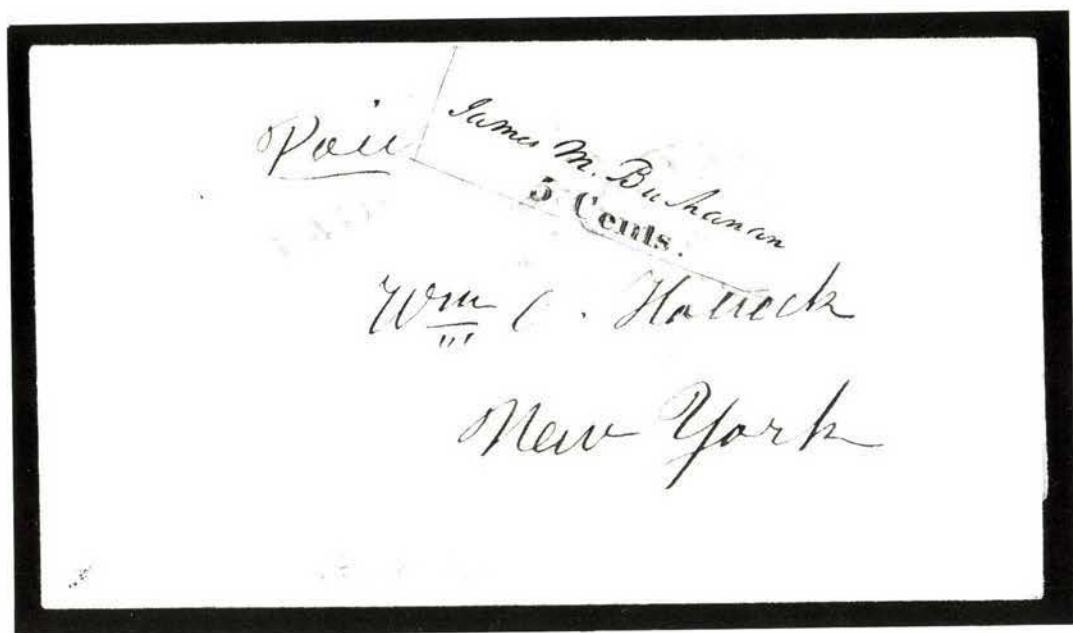 Paid
James M. Buchanan
5 Cents.
Wm C.
New York